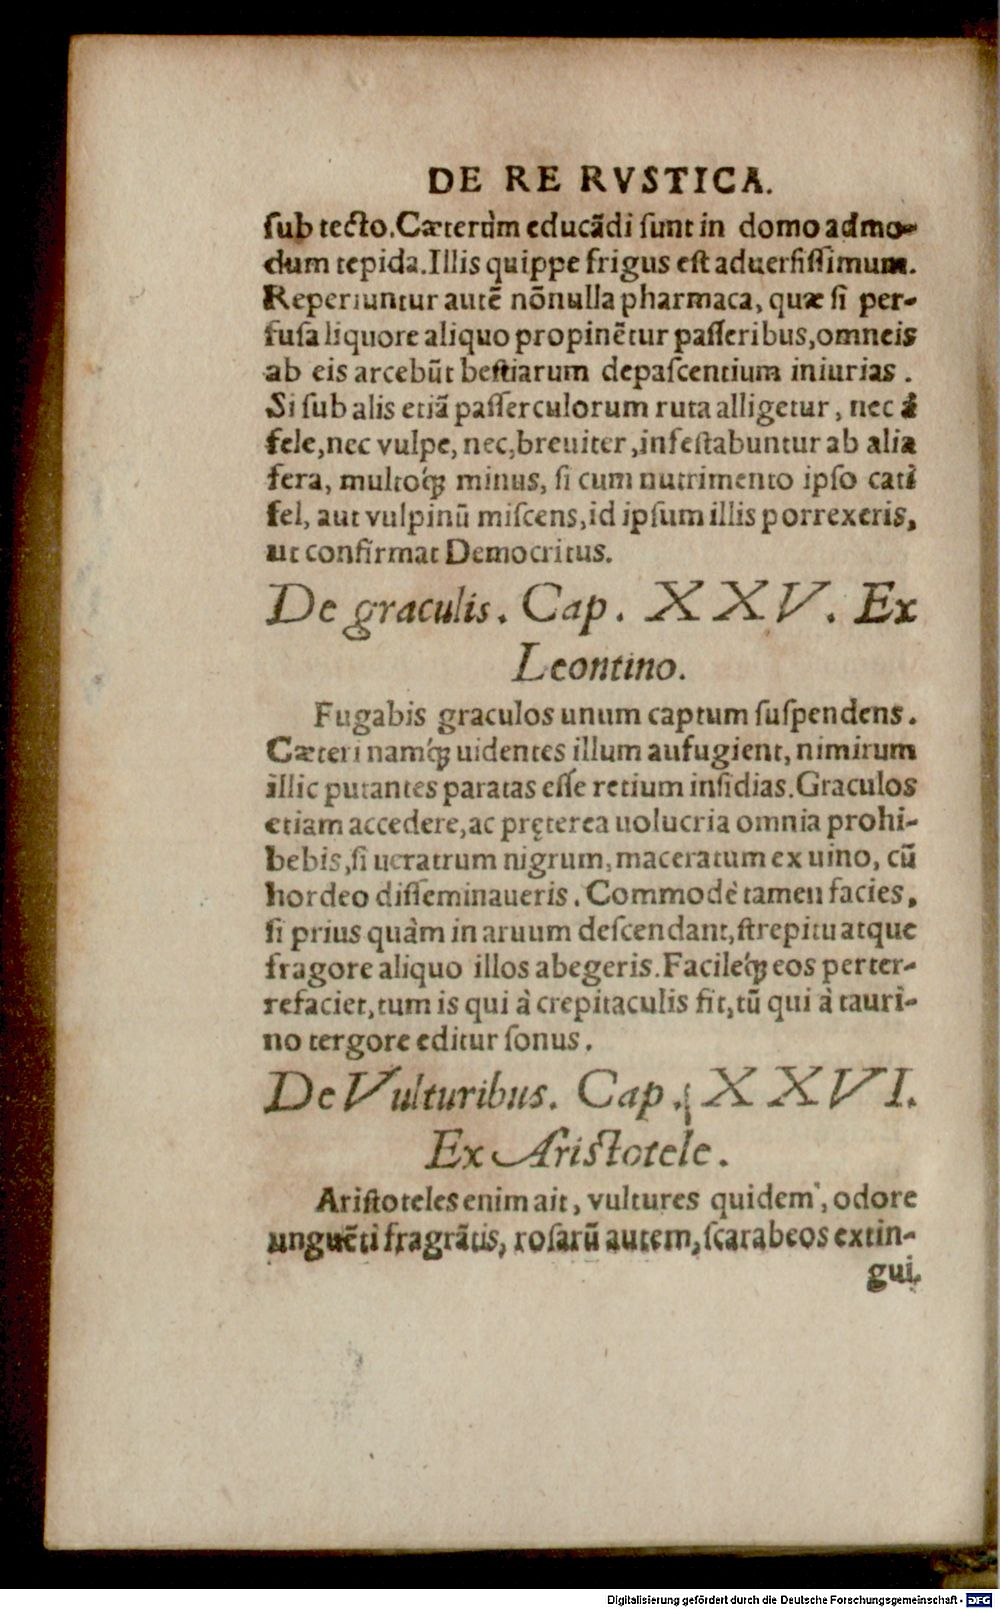 DE RE RVSTICA.
ſub tecto. Cæterùm educādi ſunt in domo admo-
dum tepida. Illis quippe frigus eſt aduerſiſſimum.
Reperiuntur autē nōnulla pharmaca, quæ ſi per-
fuſa liquore aliquo propinētur paſſeribus, omneis
ab eis arcebūt beſtiarum depaſcentium iniurias.
Si ſub alis etiā paſſerculorum ruta alligetur, nec à
fele, nec vulpe, nec, breuiter, infeſtabuntur ab alia
fera, multoq́ꝫ minus, ſi cum nutrimento ipſo cati
fel, aut vulpinū miſcens, id ipſum illis porrexeris,
ut confirmat Democritus.
De graculis. Cap. XXV. Ex
Leontino.
Fugabis graculos unum captum ſuſpendens.
Cæteri namq́ꝫ uidentes illum aufugient, nimirum
illic putantes paratas eſſe retium inſidias. Graculos
etiam accedere, ac pręterea uolucria omnia prohi-
bebis, ſi ueratrum nigrum, maceratum ex uino, cū
hordeo diſſeminaueris. Commodè tamen facies,
ſi prius quàm in aruum deſcendant, ſtrepitu atque
fragore aliquo illos abegeris. Facileq́ꝫ eos perter-
refaciet, tum is qui à crepitaculis fit, tū qui à tauri-
no tergore editur ſonus.
De Vulturibus. Cap. XXVI.
Ex Ariſtotele.
Ariſtoteles enim ait, vultures quidem, odore
unguēti fragrātis, roſarū autem, ſcarabeos extin-
gui.
Digitalisierung gefördert durch die Deutsche Forschungsgemeinschaft - DFG